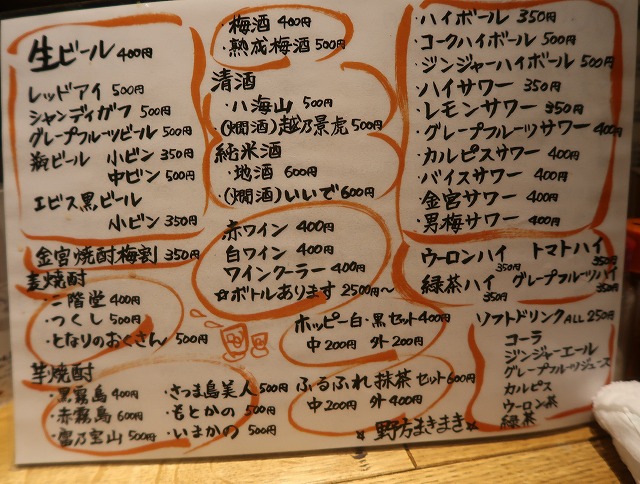 生ビール 400円
レッドアイ 500円
シャンディガフ 500円
グレープフルーツビール 500円
瓶ビール 小ビン 350円
中ビン 500円
エビス黒ビール
小ビン 350円
金宮焼酎梅割 350円
麦焼酎
・二階堂 400円
・つくし 500円
・となりのおくさん 500円
芋焼酎
・黒霧島 400円
・赤霧島 600円
・宝山 500円
・さつま島美人 500円
・もとかの 500円
・いまかの 500円
・梅酒 400円
・熟成梅酒 500円
清酒
・八海山 500円
・(燗酒)越乃景虎 500円
純米酒
・地酒 600円
・(燗酒)いいで 600円
赤ワイン 400円
白ワイン 400円
ワインクーラー 400円
☆ボトルあります 2500円〜
ホッピー白・黒セット 400円
中 200円 外 200円
ふるふれ抹茶セット 600円
中 200円 外 400円
☆野方まきまき☆
・ハイボール 350円
・コークハイボール 500円
・ジンジャーハイボール 500円
・ハイサワー 350円
・レモンサワー 350円
・グレープフルーツサワー 400円
・カルピスサワー 400円
・バイスサワー 400円
・金宮サワー 400円
・男梅サワー 400円
ウーロンハイ 350円 トマトハイ 350円
緑茶ハイ 350円 グレープフルーツハイ 350円
ソフトドリンク ALL 250円
コーラ
ジンジャーエール
グレープフルーツジュース
カルピス
ウーロン茶
緑茶